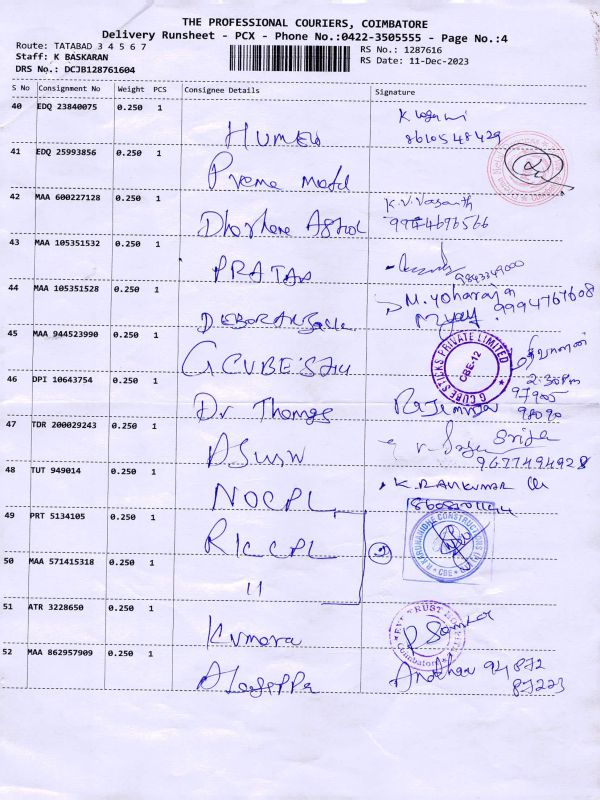 THE PROFESSIONAL COURIERS, COIMBATORE
Delivery Runsheet - PCX - Phone No.:0422-3505555 - Page No.:4
Route: TATABAD 3 4 5 6 7
RS No.: 1287616
Staff: K BASKARAN
RS Date: 11-Dec-2023
DRS No.: DCJB128761604
S No Consignment No Weight PCS Consignee Details Signature
40 EDQ 23840075 0.250 1
8610548429
41 EDQ 25993856 0.250 1
Prema
42 MAA 600227128 0.250 1
K.V. Vasanth
43 MAA 105351532 0.250 1
PRATAP
9843349000
44 MAA 105351528 0.250 1
9994767608
45 MAA 944523990 0.250 1
G CUBE
G CUBE STICKS PRIVATE LIMITED
CBE-12
46 DPI 10643754 0.250 1
Dr Thomas
2:30pm
47 TDR 200029243 0.250 1
9677494928
48 TUT 949014 0.250 1
NOCPL
K. RAMKUMAR
49 PRT 5134105 0.250 1
RICCPL
CBE
50 MAA 571415318 0.250 1
11
51 ATR 3228650 0.250 1
Kumara
EYE TRUST HOSPITAL
Coimbatore
52 MAA 862957909 0.250 1
Alagappa
94872
87223